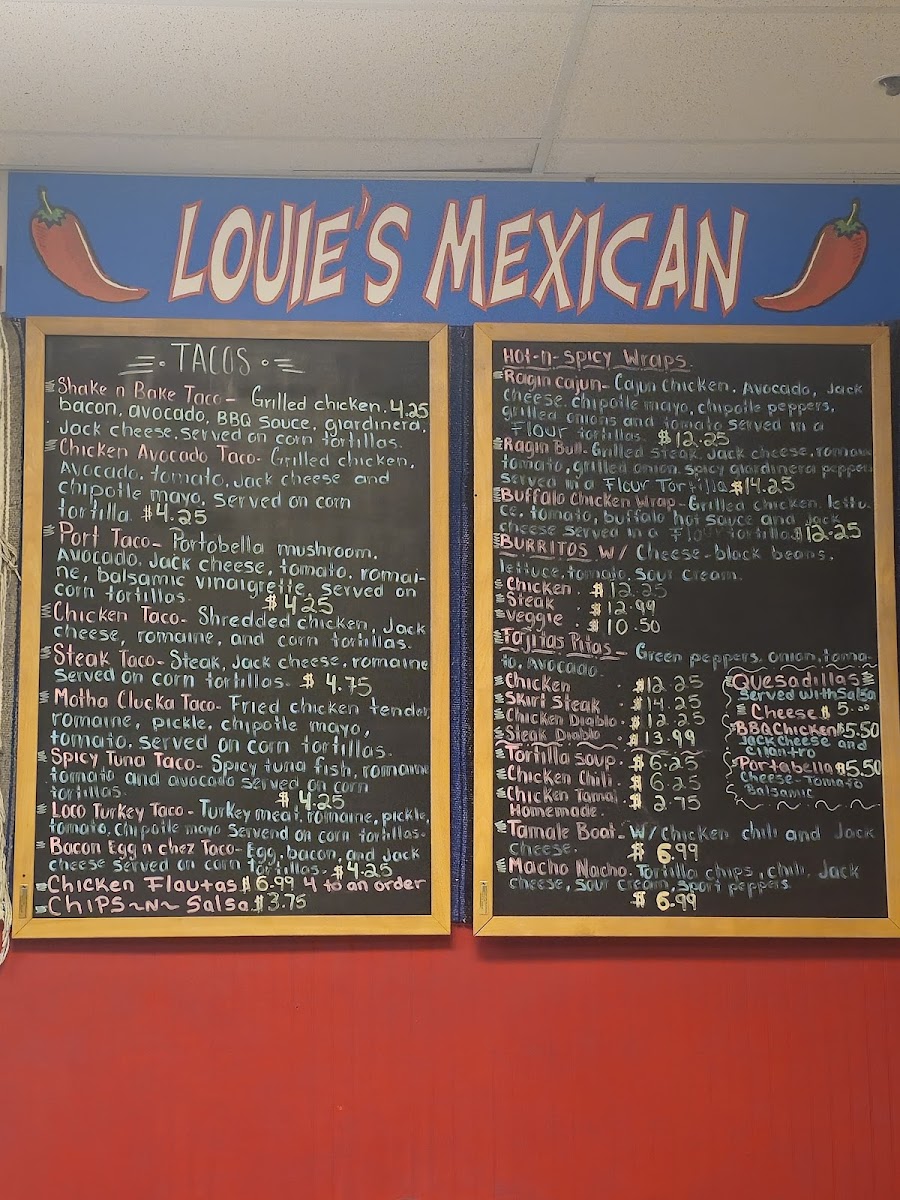 LOUIE'S MEXICAN
TACOS
Shake n Bake Taco - Grilled chicken, 4.25
bacon, avocado, BBQ sauce, giardinera,
Jack cheese, served on corn tortillas.
Chicken Avocado Taco - Grilled chicken,
Avocado, tomato, Jack cheese and
chipotle mayo, served on corn
tortilla. $4.25
Port Taco - Portobella mushroom,
Avocado, Jack cheese, tomato, romai-
ne, balsamic vinaigrette, served on
corn tortillas. $4.25
Chicken Taco - Shredded chicken, Jack
cheese, romaine, and corn tortillas.
Steak Taco - Steak, Jack cheese, romaine
Served on corn tortillas. $4.75
Motha Clucka Taco - Fried chicken tender,
romaine, pickle, chipotle mayo,
tomato, served on corn tortillas.
Spicy Tuna Taco - Spicy tuna fish, romaine
tomato and avocado served on corn
tortillas. $4.25
Loco Turkey Taco - Turkey meat, romaine, pickle,
tomato, chipotle mayo Servend on corn tortillas.
Bacon Egg n chez Taco - Egg, bacon, and Jack
cheese served on corn tortillas. $4.25
Chicken Flautas $6.99 4 to an order
CHIPS ~N~ Salsa $3.75
Hot-n-spicy Wraps.
Ragin cajun - Cajun Chicken, Avocado, Jack
cheese, chipotle mayo, chipotle peppers,
grilled onions and tomato served in a
Flour tortillas. $12.25
Ragin Bull - Grilled steak, Jack cheese, romain
tomato, grilled onion, spicy giardinera pepper
served in a Flour Tortilla $14.25
Buffalo Chicken Wrap - Grilled chicken, lettu-
ce, tomato, buffalo hot sauce and Jack
cheese served in a flour tortilla. $12.25
BURRITOS W/ Cheese - black beans,
lettuce, tomato, sour cream.
Chicken . $12.25
Steak . $12.99
veggie . $10.50
Fajitas Pitas - Green peppers, onion, toma-
to, Avocado.
Chicken . $12.25
Skirt Steak . $14.25
Chicken Diablo . $12.25
Steak Diablo . $13.99
Quesadillas
Served with Salsa
Cheese $5.00
BBQ Chicken $5.50
Jack cheese and
Cilantro
Portabella $5.50
Cheese - Tomato
Balsamic
Tortilla soup . $6.25
Chicken Chili . $6.25
Chicken Tamal . $2.75
Homemade.
Tamale Boat - W/ chicken chili and Jack
cheese. $6.99
Macho Nacho. Tortilla chips, chili, Jack
cheese, sour cream, sport peppers.
$6.99